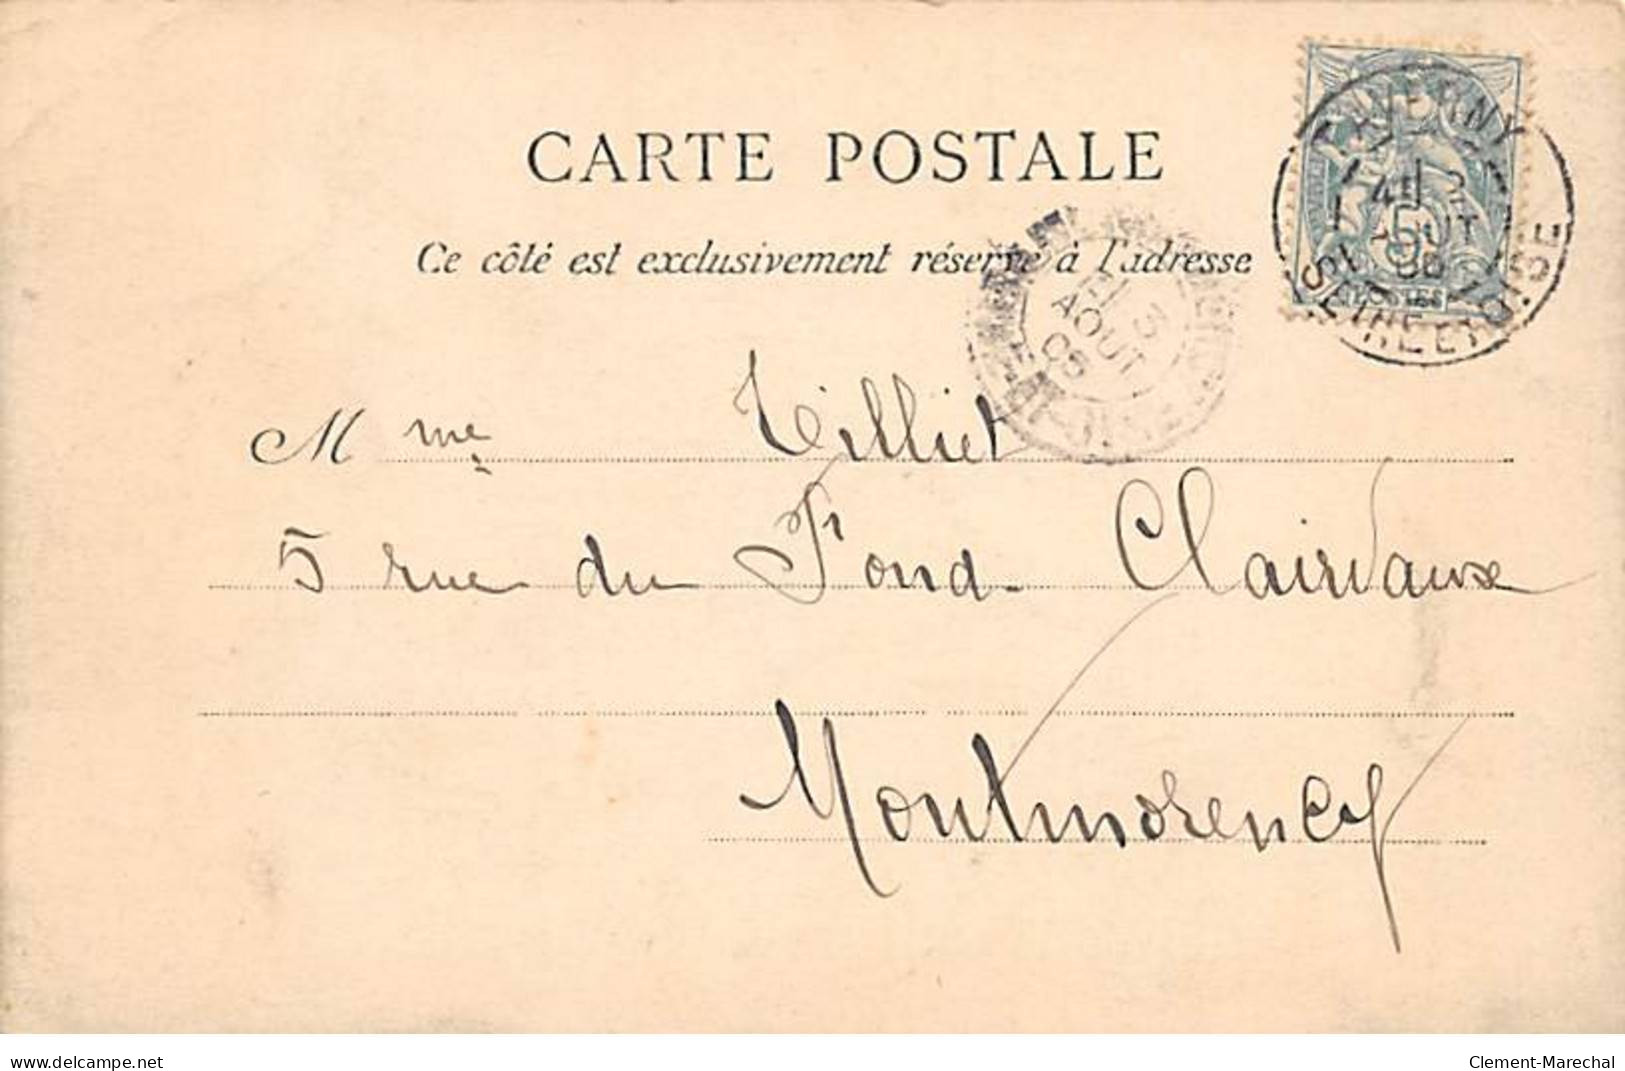 CARTE POSTALE
Ce côté est exclusivement réservé à l'adresse
TAVERNY
AOUT
SEINE ET OISE
5
POSTES
AOUT
06
Mme Tilliet
5 rue du Fond Clairvaux
Montmorency
delcampe.net
Clement-Marechal